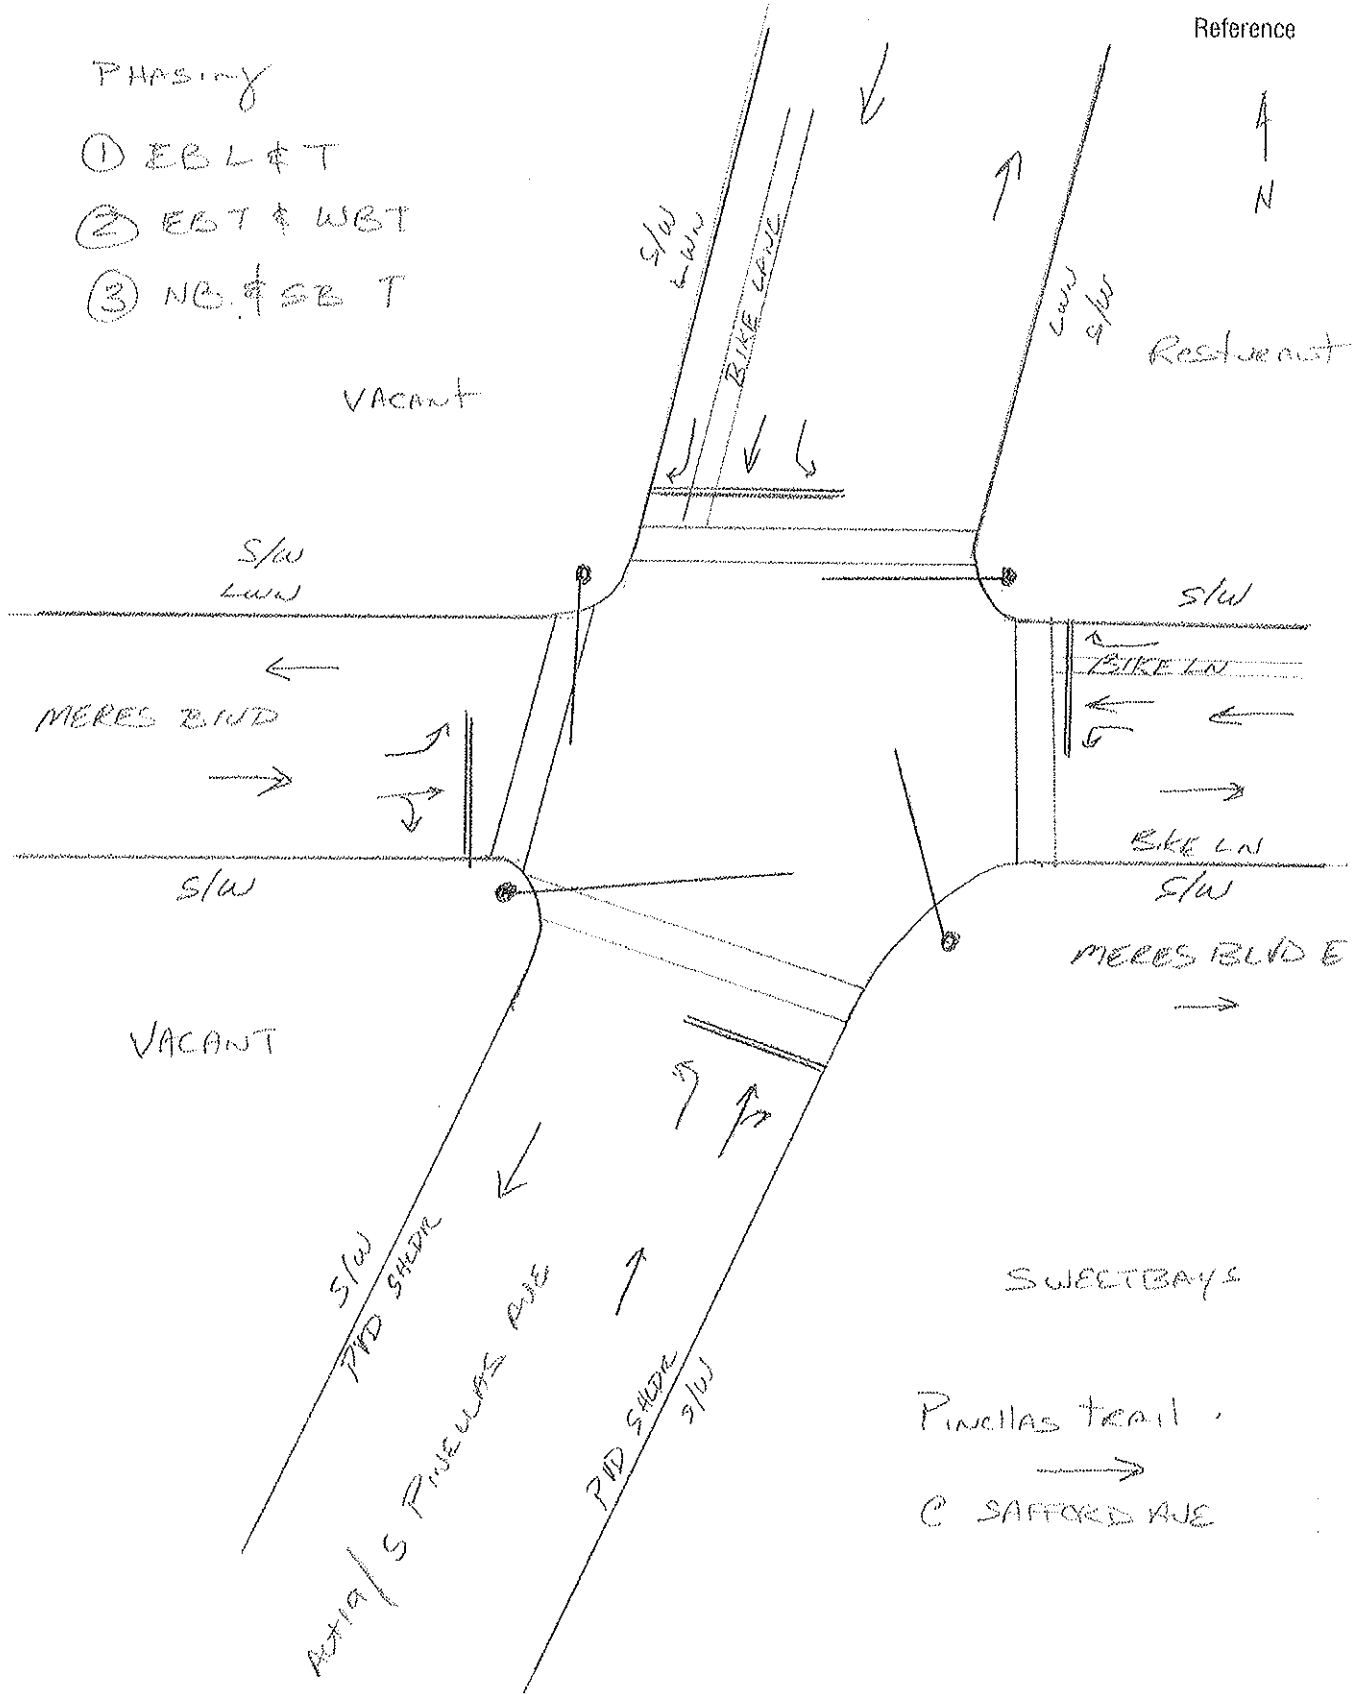 Reference
PHASING
① EB L & T
② EBT & WBT
③ NB & SB T
N
S/W
LWN
BIKE LANE
LWN
S/W
Restueraut
VACANT
S/W
LWN
S/W
BIKE LN
MERES BLVD
BIKE LN
S/W
S/W
MERES BLVD E
VACANT
S/W
PVD SHLDR
S PINELLAS AVE
PVD SHLDR
S/W
SWEETBAYS
Pinellas trail
@ SAFFORD AVE